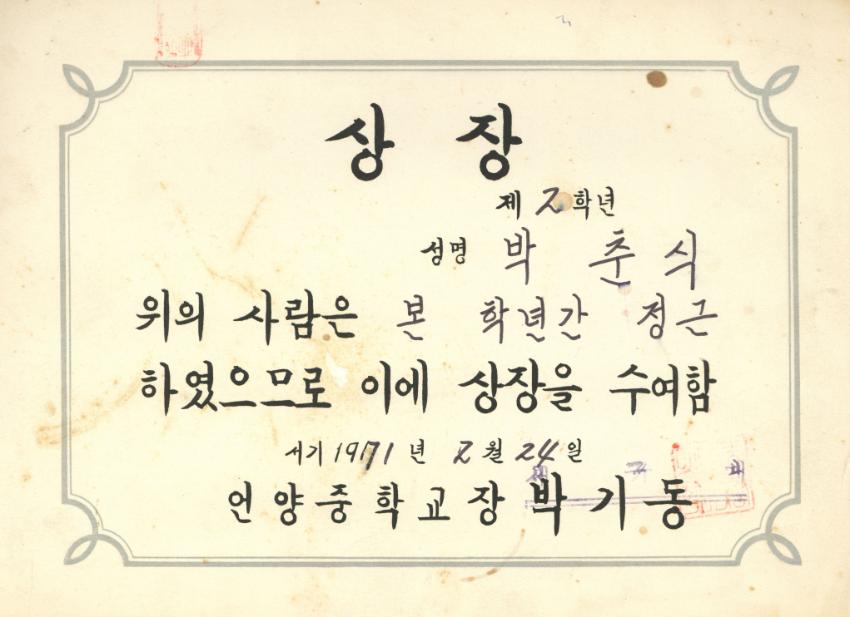 상장
제 2 학년
성명 박 춘 식
위의 사람은 본 학년간 정근
하였으므로 이에 상장을 수여함
서기 1971 년 2 월 24 일
언양중학교장 박기동